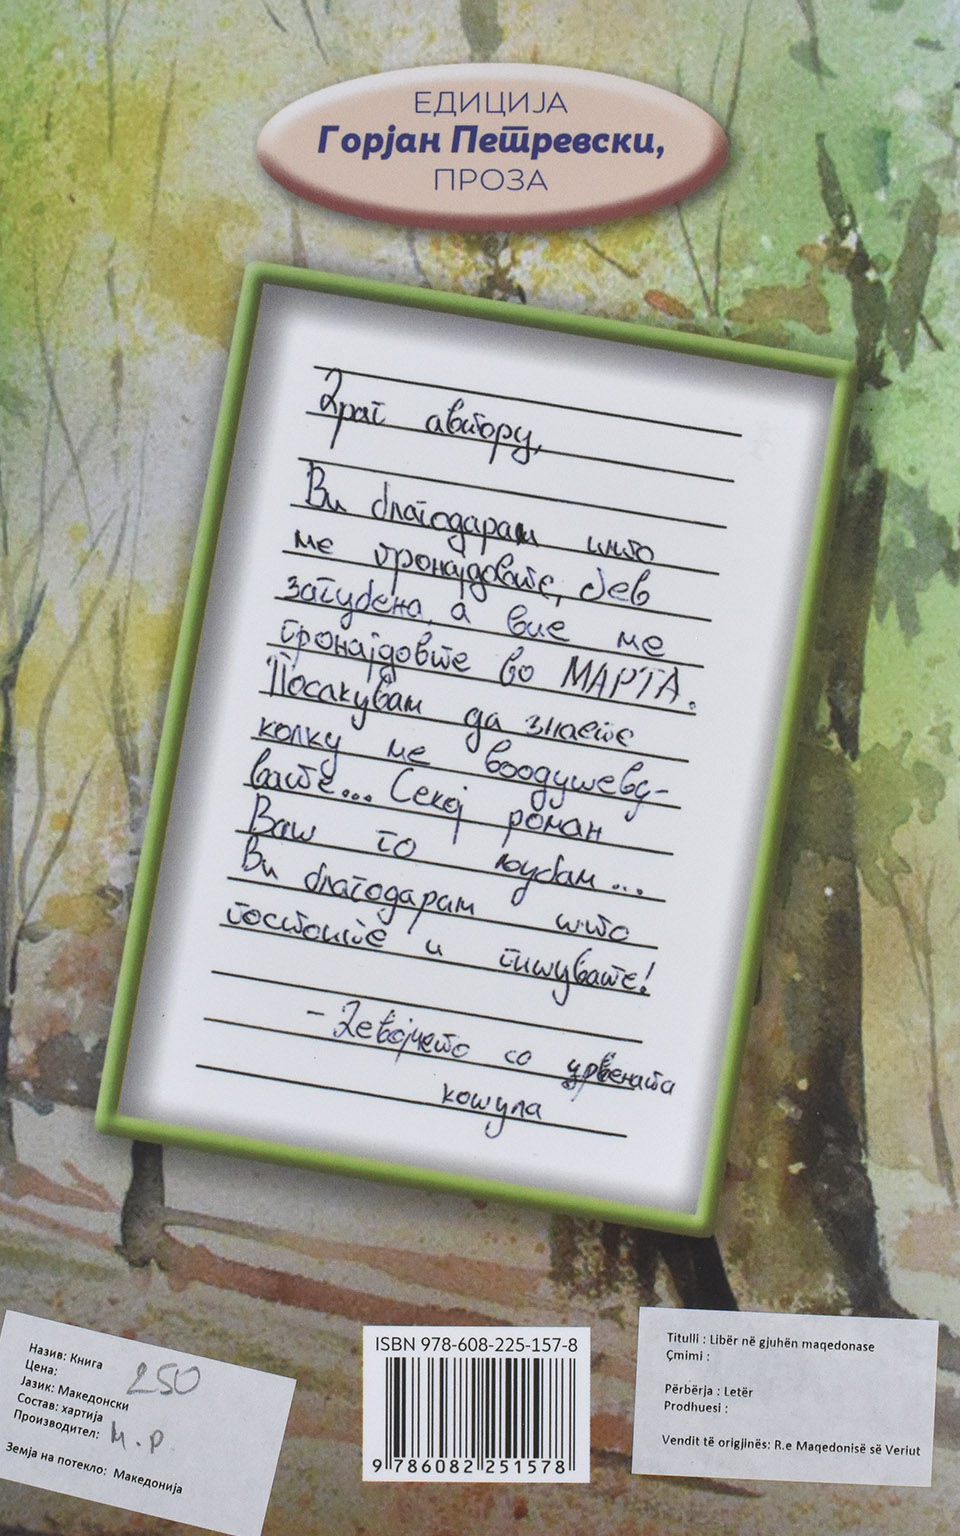 ЕДИЦИЈА
Горјан Петревски,
ПРОЗА
Драг авторy,
Ви благодарам што
ме пронајдовте, бев
загубена, а вие ме
пронајдовте во МАРТА.
Посакувам да знаете
колку ме воодушеву-
вате... Секој роман
Ваш го љубам...
Ви благодарам што
постоите и пишувате!
- Девојчето со црвената
кошула
Назив: Книга
Цена: 250
Јазик: Македонски
Состав: хартија
Производител: М.Р.
Земја на потекло: Македонија
ISBN 978-608-225-157-8
9 786082 251578
Titulli : Libër në gjuhën maqedonase
Çmimi :
Përbërja : Letër
Prodhuesi :
Vendit të origjinës: R.e Maqedonisë së Veriut